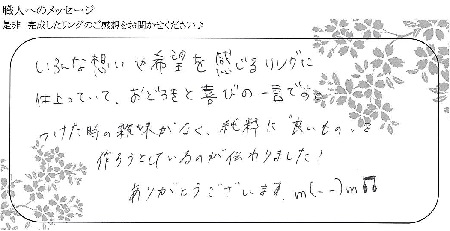 職人へのメッセージ
是非 完成したリングのご感想をお聞かせください♪
いろんな想いや希望を感じるリングに
仕上っていて、おどろきと喜びの一言です。
つけた時の雑味がなく、純粋に"良いもの"を
作ろうとしているのが伝わりました!
ありがとうございます。m(--)m